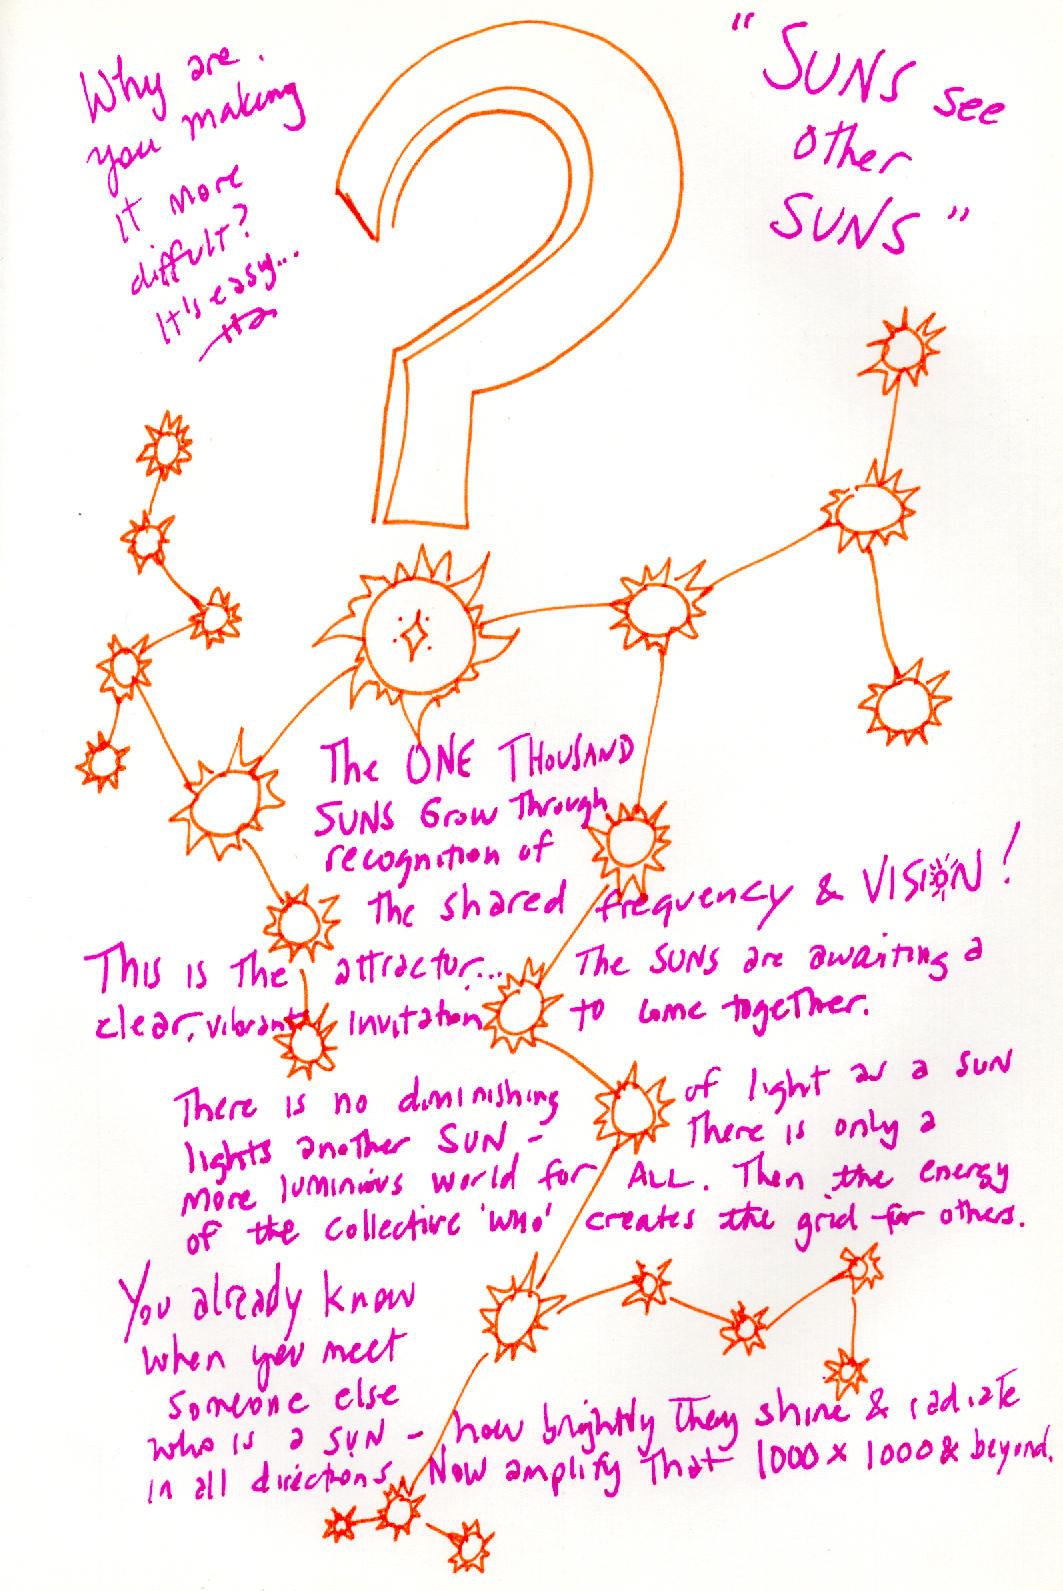 Why are
you making
it more
diffult?
It's easy...
"SUNS see
other
SUNS"
The ONE THOUSAND
SUNS Grow Through
recognition of
the shared frequency & VISION!
This is the attractor... The SUNS are awaiting a
clear, vibrant invitation to come together.
There is no diminishing of light as a SUN
lights another SUN - There is only a
more luminious world for ALL. Then the energy
of the collective 'WHO' creates the grid for others.
You already know
when you meet
someone else
who is a SUN - how brightly they shine & radiate
in all directions. Now amplify that 1000 x 1000 & beyond.